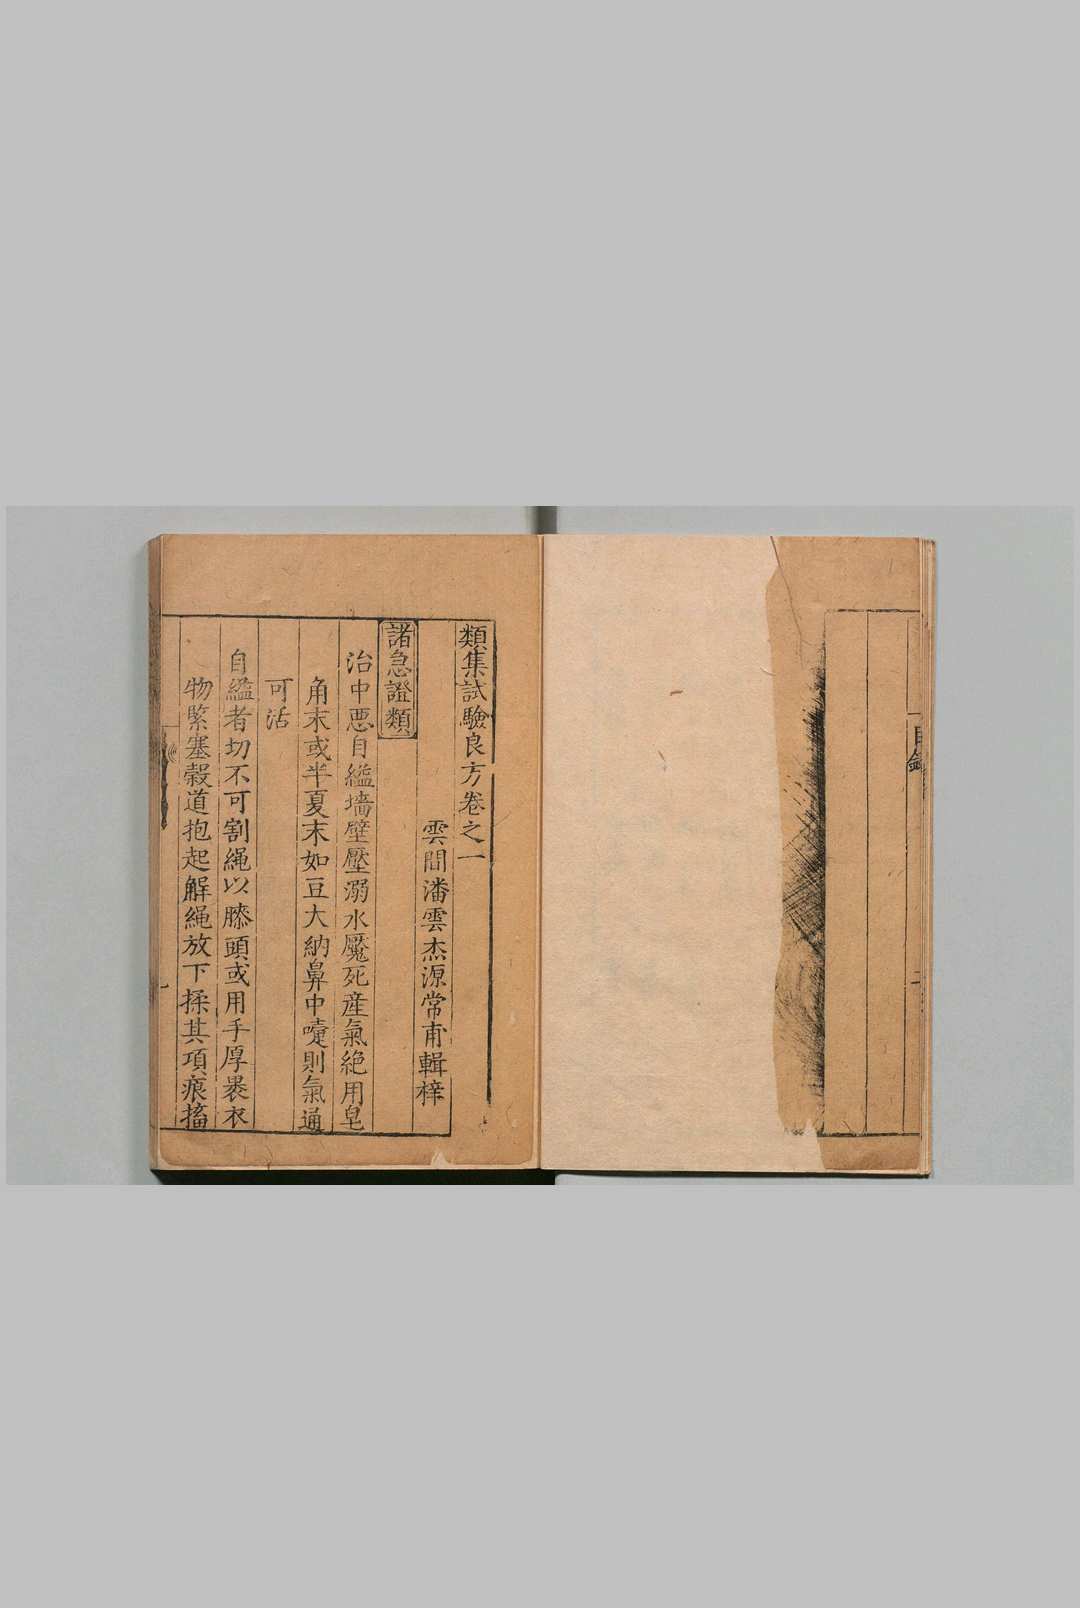 目錄
二
類集試驗良方卷之一
雲間潘雲杰源常甫輯梓
諸急證類
治中惡自縊墻壁壓溺水魘死産氣絶用皂
角末或半夏末如豆大納鼻中嚏則氣通
可活
自縊者切不可割繩以膝頭或用手厚裹衣
物緊塞穀道抱起解繩放下揉其項痕搐